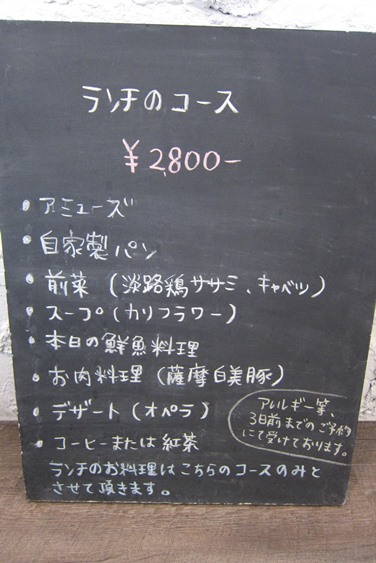 ランチのコース
¥2,800-
・アミューズ
・自家製パン
・前菜(淡路鶏ササミ、キャベツ)
・スープ(カリフラワー)
・本日の鮮魚料理
・お肉料理(薩摩白美豚)
・デザート(オペラ)
・コーヒーまたは紅茶
アレルギー等、
3日前までのご予約
にて受けております。
ランチのお料理はこちらのコースのみと
させて頂きます。